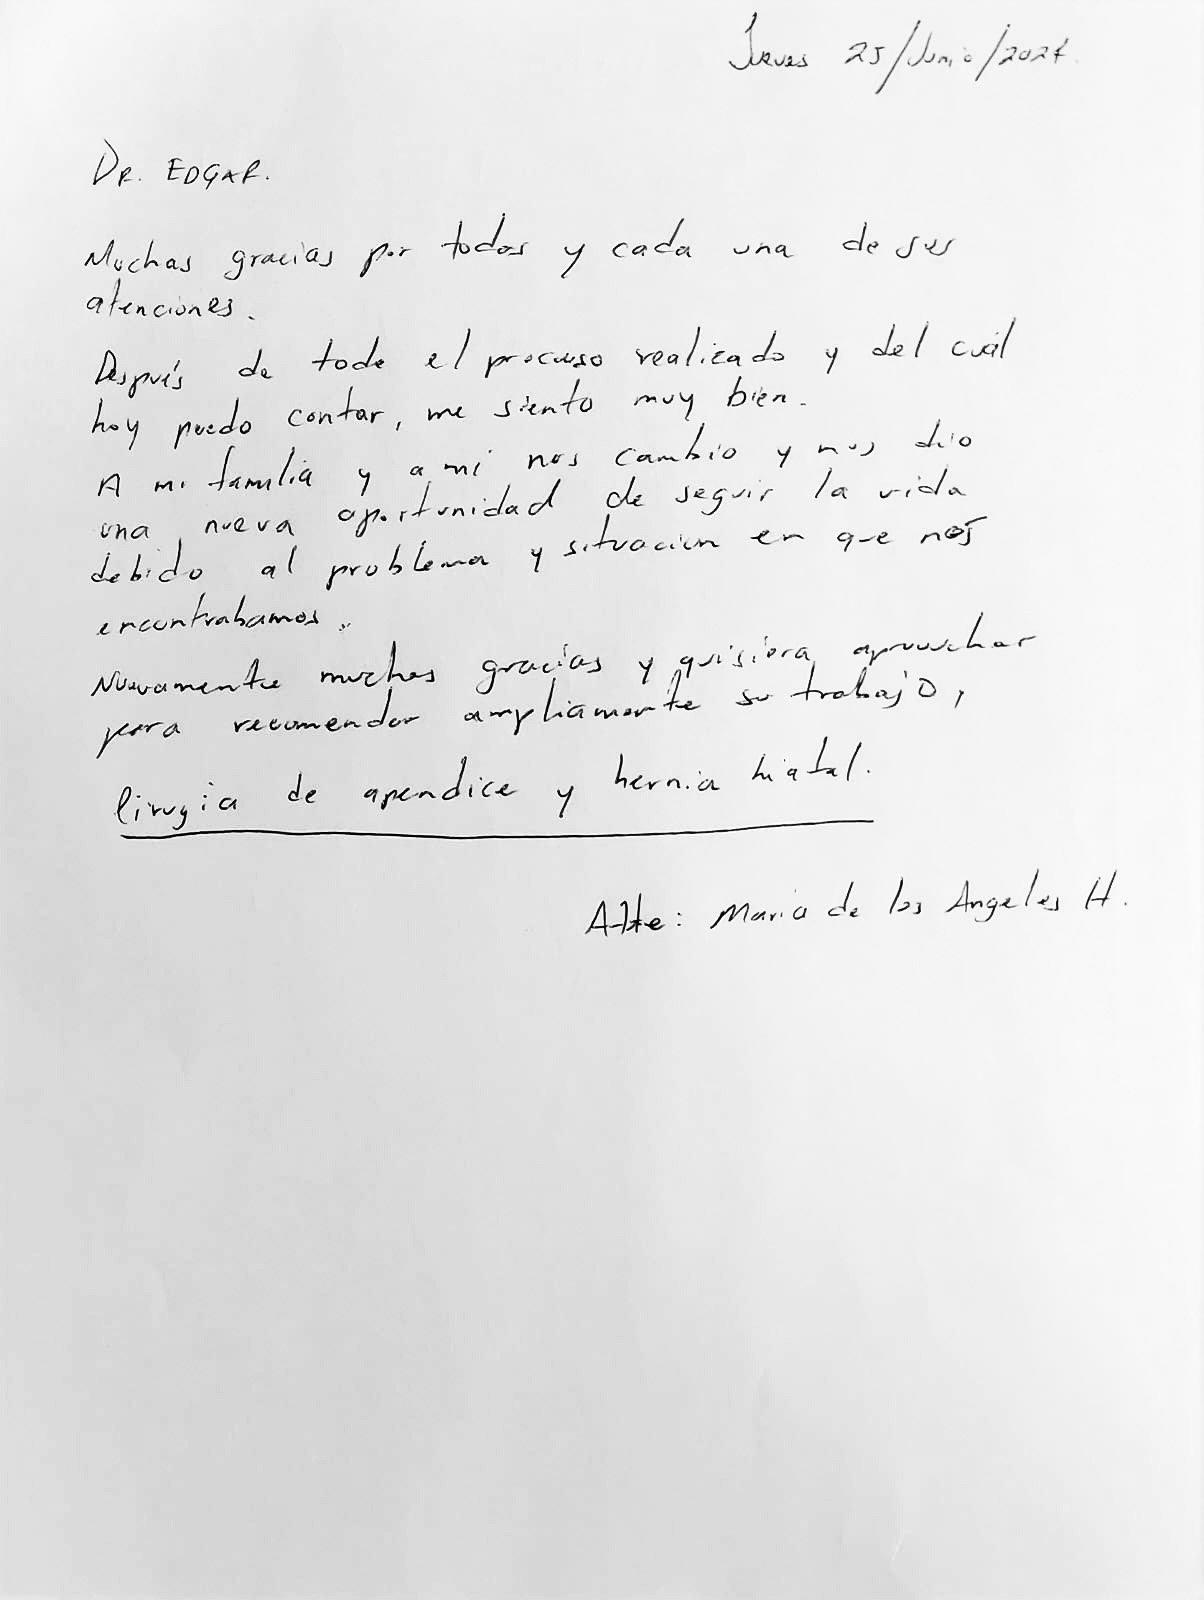 Jueves 25/Junio/2024.
DR. EDGAR.
Muchas gracias por todas y cada una de sus
atenciones.
Después de todo el proceso realizado y del cuál
hoy puedo contar, me siento muy bien.
A mi familia y a mi nos cambio y nos dio
una nueva oportunidad de seguir la vida
debido al problema y situacion en que nos
encontrabamos.
Nuevamente muchas gracias y quisiera aprovechar
para recomendar ampliamente su trabajo,
Cirugia de apendice y hernia hiatal.
Atte: Maria de los Angeles H.